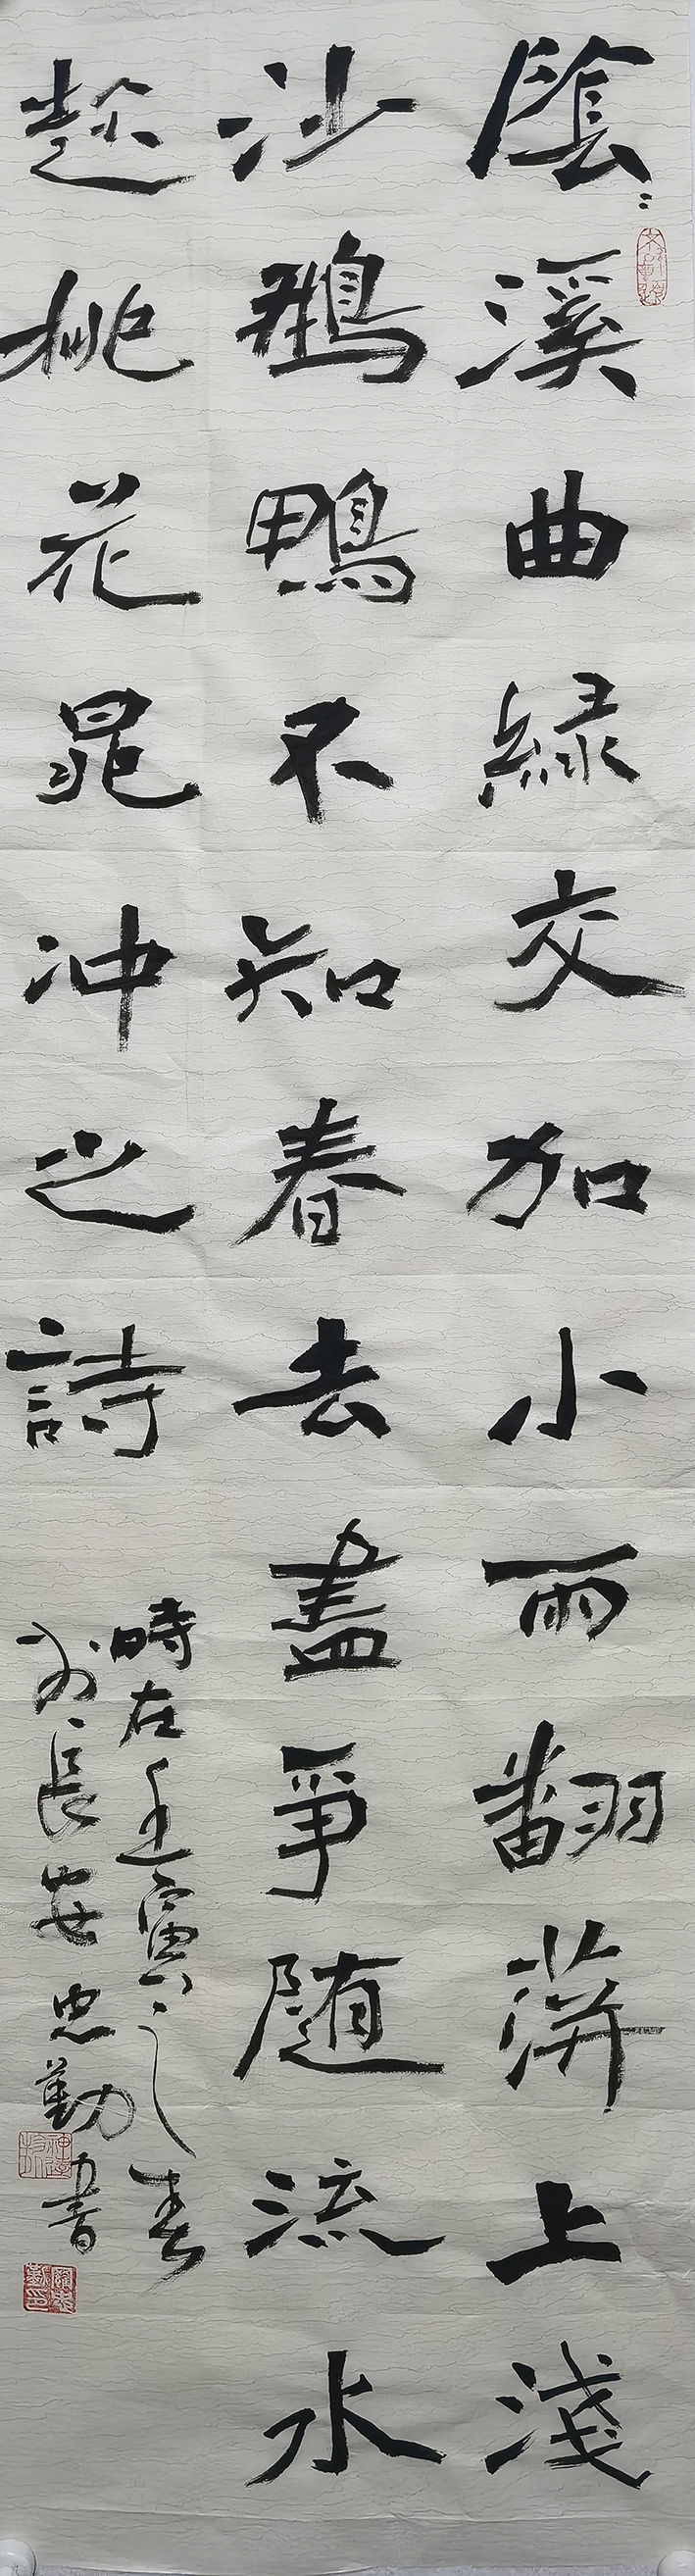 陰〻溪曲綠交加小雨翻萍上淺
沙鵝鴨不知春去盡爭随流水
趂桃花晁冲之詩
時在壬寅之春
於長安忠勤書